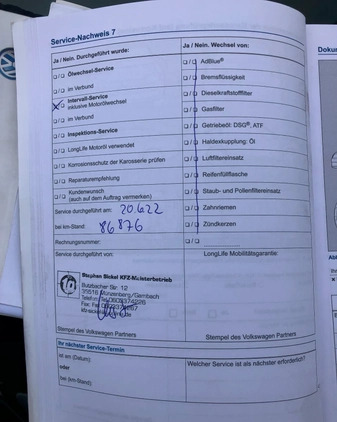 Service-Nachweis 7
Ja / Nein. Durchgeführt wurde:
Ölwechsel-Service
im Verbund
Intervall-Service
inklusive Motorölwechsel
im Verbund
Inspektions-Service
LongLife Motoröl verwendet
Korrosionsschutz der Karosserie prüfen
Reparaturempfehlung
Kundenwunsch
(auch auf dem Auftrag vermerken)
Service durchgeführt am: 20.6.22
bei km-Stand: 86876
Rechnungsnummer:
Service durchgeführt von:
Stephan Bickel KFZ-Meisterbetrieb
Butzbacher Str. 12
35516 Münzenberg/Gambach
Stempel des Volkswagen Partners
Ja / Nein. Wechsel von:
AdBlue®
Bremsflüssigkeit
Dieselkraftstofffilter
Gasfilter
Getriebeöl: DSG®, ATF
Haldexkupplung: Öl
Luftfiltereinsatz
Reifenfüllflasche
Staub- und Pollenfiltereinsatz
Zahnriemen
Zündkerzen
LongLife Mobilitätsgarantie:
Stempel des Volkswagen Partners
Ihr nächster Service-Termin
ist am (Datum):
oder
bei (km-Stand):
Welcher Service ist als nächster erforderlich?
Dokum